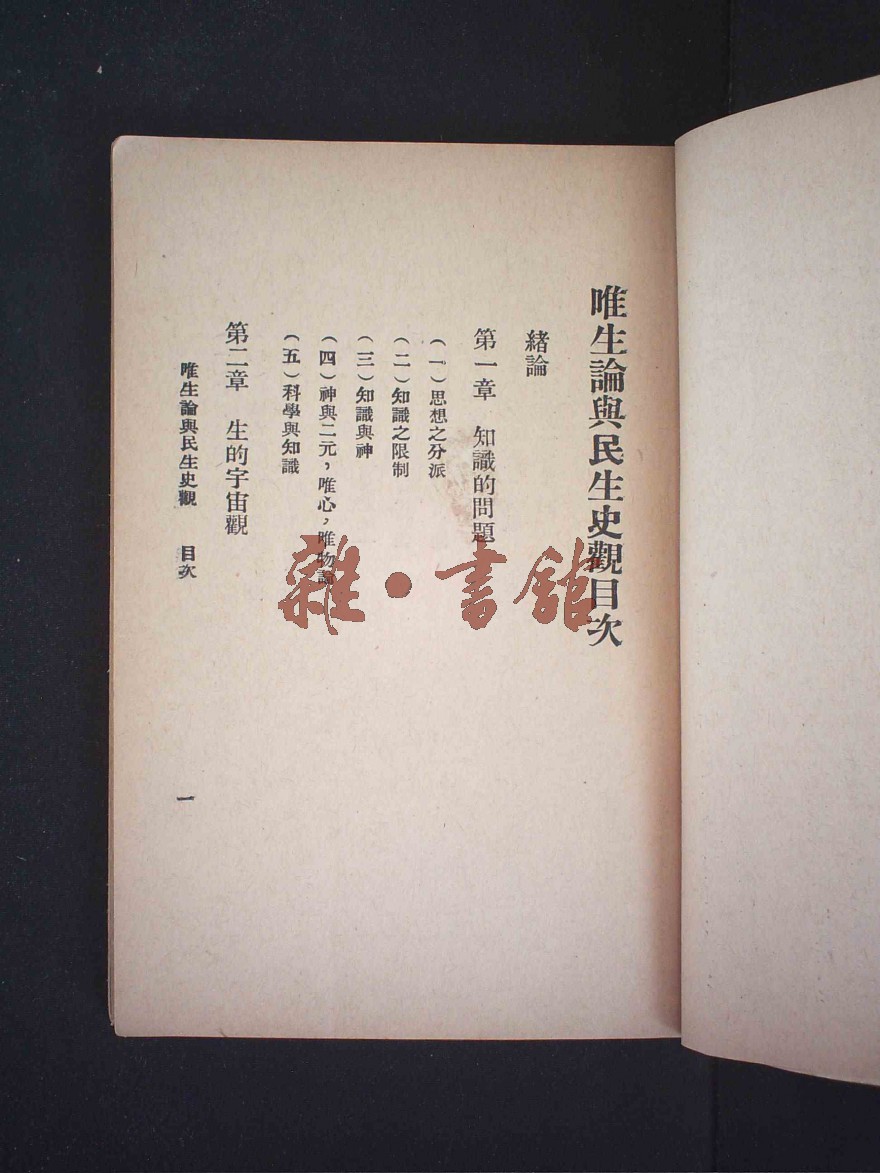 唯生論與民生史觀目次
緒論
第一章 知識的問題
(一)思想之分派
(二)知識之限制
(三)知識與神
(四)神與二元,唯心,唯物論
(五)科學與知識
第二章 生的宇宙觀
唯生論與民生史觀 目次
一
雜·書館